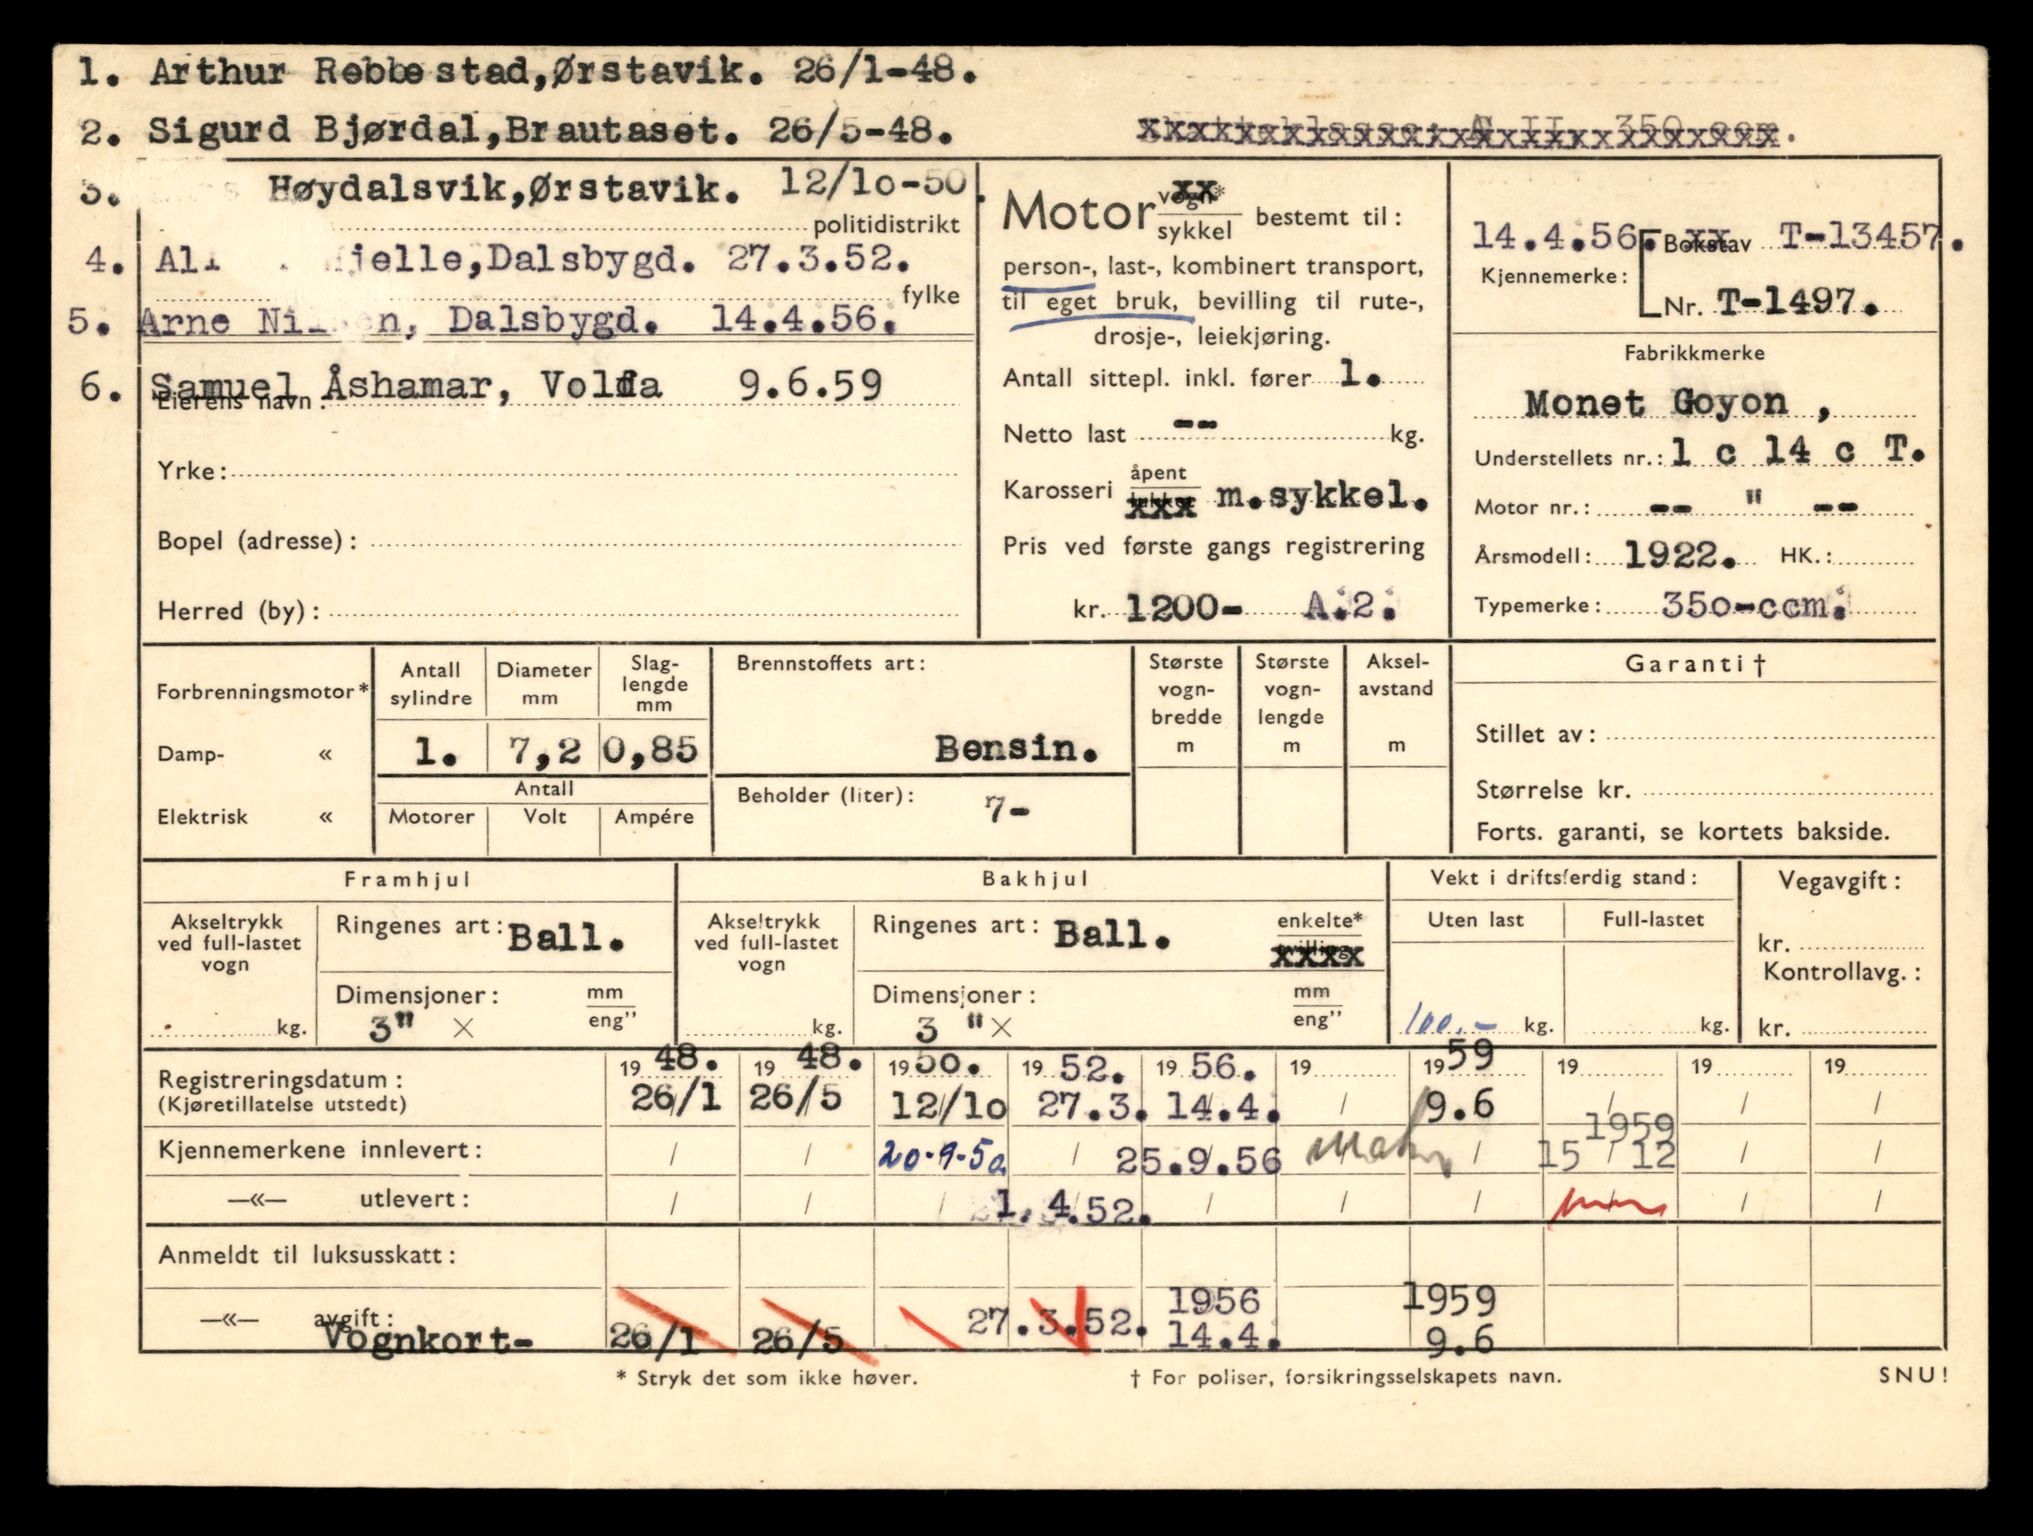 1. Arthur Rebbestad,Ørstavik. 26/1-48.
2. Sigurd Bjørdal,Brautaset. 26/5-48.
3. Høydalsvik,Ørstavik. 12/1o-50.
politidistrikt
4. jelle,Dalsbygd. 27.3.52.
fylke
5. Arne Dalsbygd. 14.4.56.
6. Samuel Åshamar, Volda 9.6.59
Eierens navn:
Yrke:
Bopel (adresse):
Herred (by):
Motor vogn* xx
sykkel bestemt til:
person-, last-, kombinert transport,
til eget bruk, bevilling til rute-,
drosje-, leiekjøring.
Antall sittepl. inkl. fører 1.
Netto last -- kg.
Karosseri åpent
xxx m.sykkel.
Pris ved første gangs registrering
kr. 1200- A.2.
14.4.56. xx Bokstav T-13457.
Kjennemerke:
Nr. T-1497.
Fabrikkmerke
Monet Goyon ,
Understellets nr.: 1 c 14 c T.
Motor nr.: -- " --
Årsmodell: 1922. HK.:
Typemerke: 35o-ccm.
Forbrenningsmotor*
Damp- «
Elektrisk «
Antall sylindre
1.
Diameter mm
7,2
Slag-lengde mm
0,85
Antall
Motorer Volt Ampére
Brennstoffets art:
Bensin.
Beholder (liter): 7-
Største vogn-bredde m
Største vogn-lengde m
Aksel-avstand m
Garanti†
Stillet av:
Størrelse kr.
Forts. garanti, se kortets bakside.
Framhjul
Akseltrykk ved full-lastet vogn
kg.
Ringenes art: Ball.
Dimensjoner: mm
3" × eng"
Bakhjul
Akseltrykk ved full-lastet vogn
kg.
Ringenes art: Ball. enkelte*
xxxx
Dimensjoner: mm
3 "× eng"
Vekt i driftsferdig stand:
Uten last Full-lastet
100.- kg. kg.
Vegavgift:
kr.
Kontrollavg.:
kr.
Registreringsdatum: 1948. 1948. 1950. 1952. 1956. 19 1959 19 19 19
(Kjøretillatelse utstedt) 26/1 26/5 12/1o 27.3. 14.4. / 9.6 / / /
Kjennemerkene innlevert: / / 20-9-50 / 25.9.56 / / 1959 15 / 12 / /
—«— utlevert: / / / 1. 4.52. / / / / / /
Anmeldt til luksusskatt:
—«— avgift: 27.3.52. 1956 14.4. 1959 9.6
Vognkort- 26/1 26/5
* Stryk det som ikke høver.
† For poliser, forsikringsselskapets navn.
SNU!